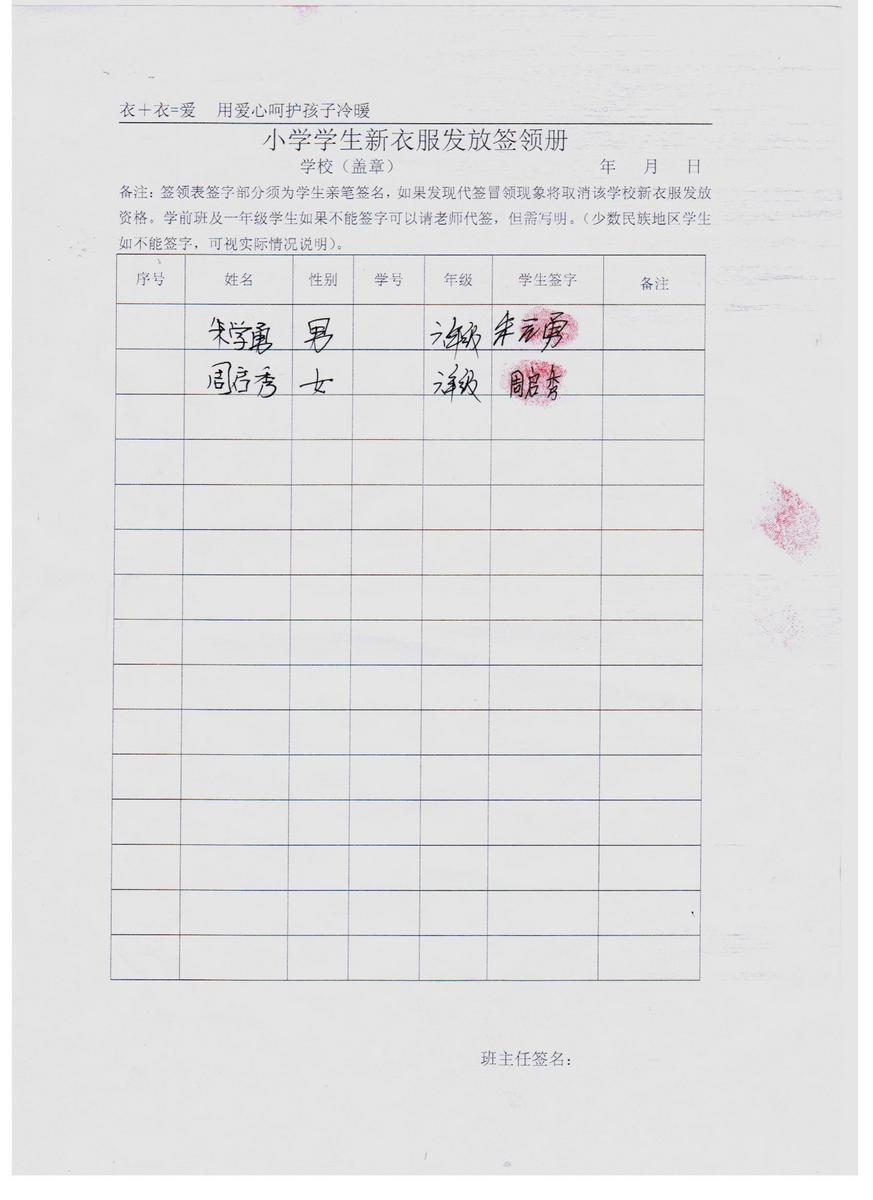 衣＋衣=爱 用爱心呵护孩子冷暖
小学学生新衣服发放签领册
学校（盖章） 年 月 日
备注：签领表签字部分须为学生亲笔签名，如果发现代签冒领现象将取消该学校新衣服发放
资格。学前班及一年级学生如果不能签字可以请老师代签，但需写明。（少数民族地区学生
如不能签字，可视实际情况说明）。
序号 姓名 性别 学号 年级 学生签字 备注
朱学勇 男 六年级 朱学勇
周启秀 女 六年级 周启秀
班主任签名：